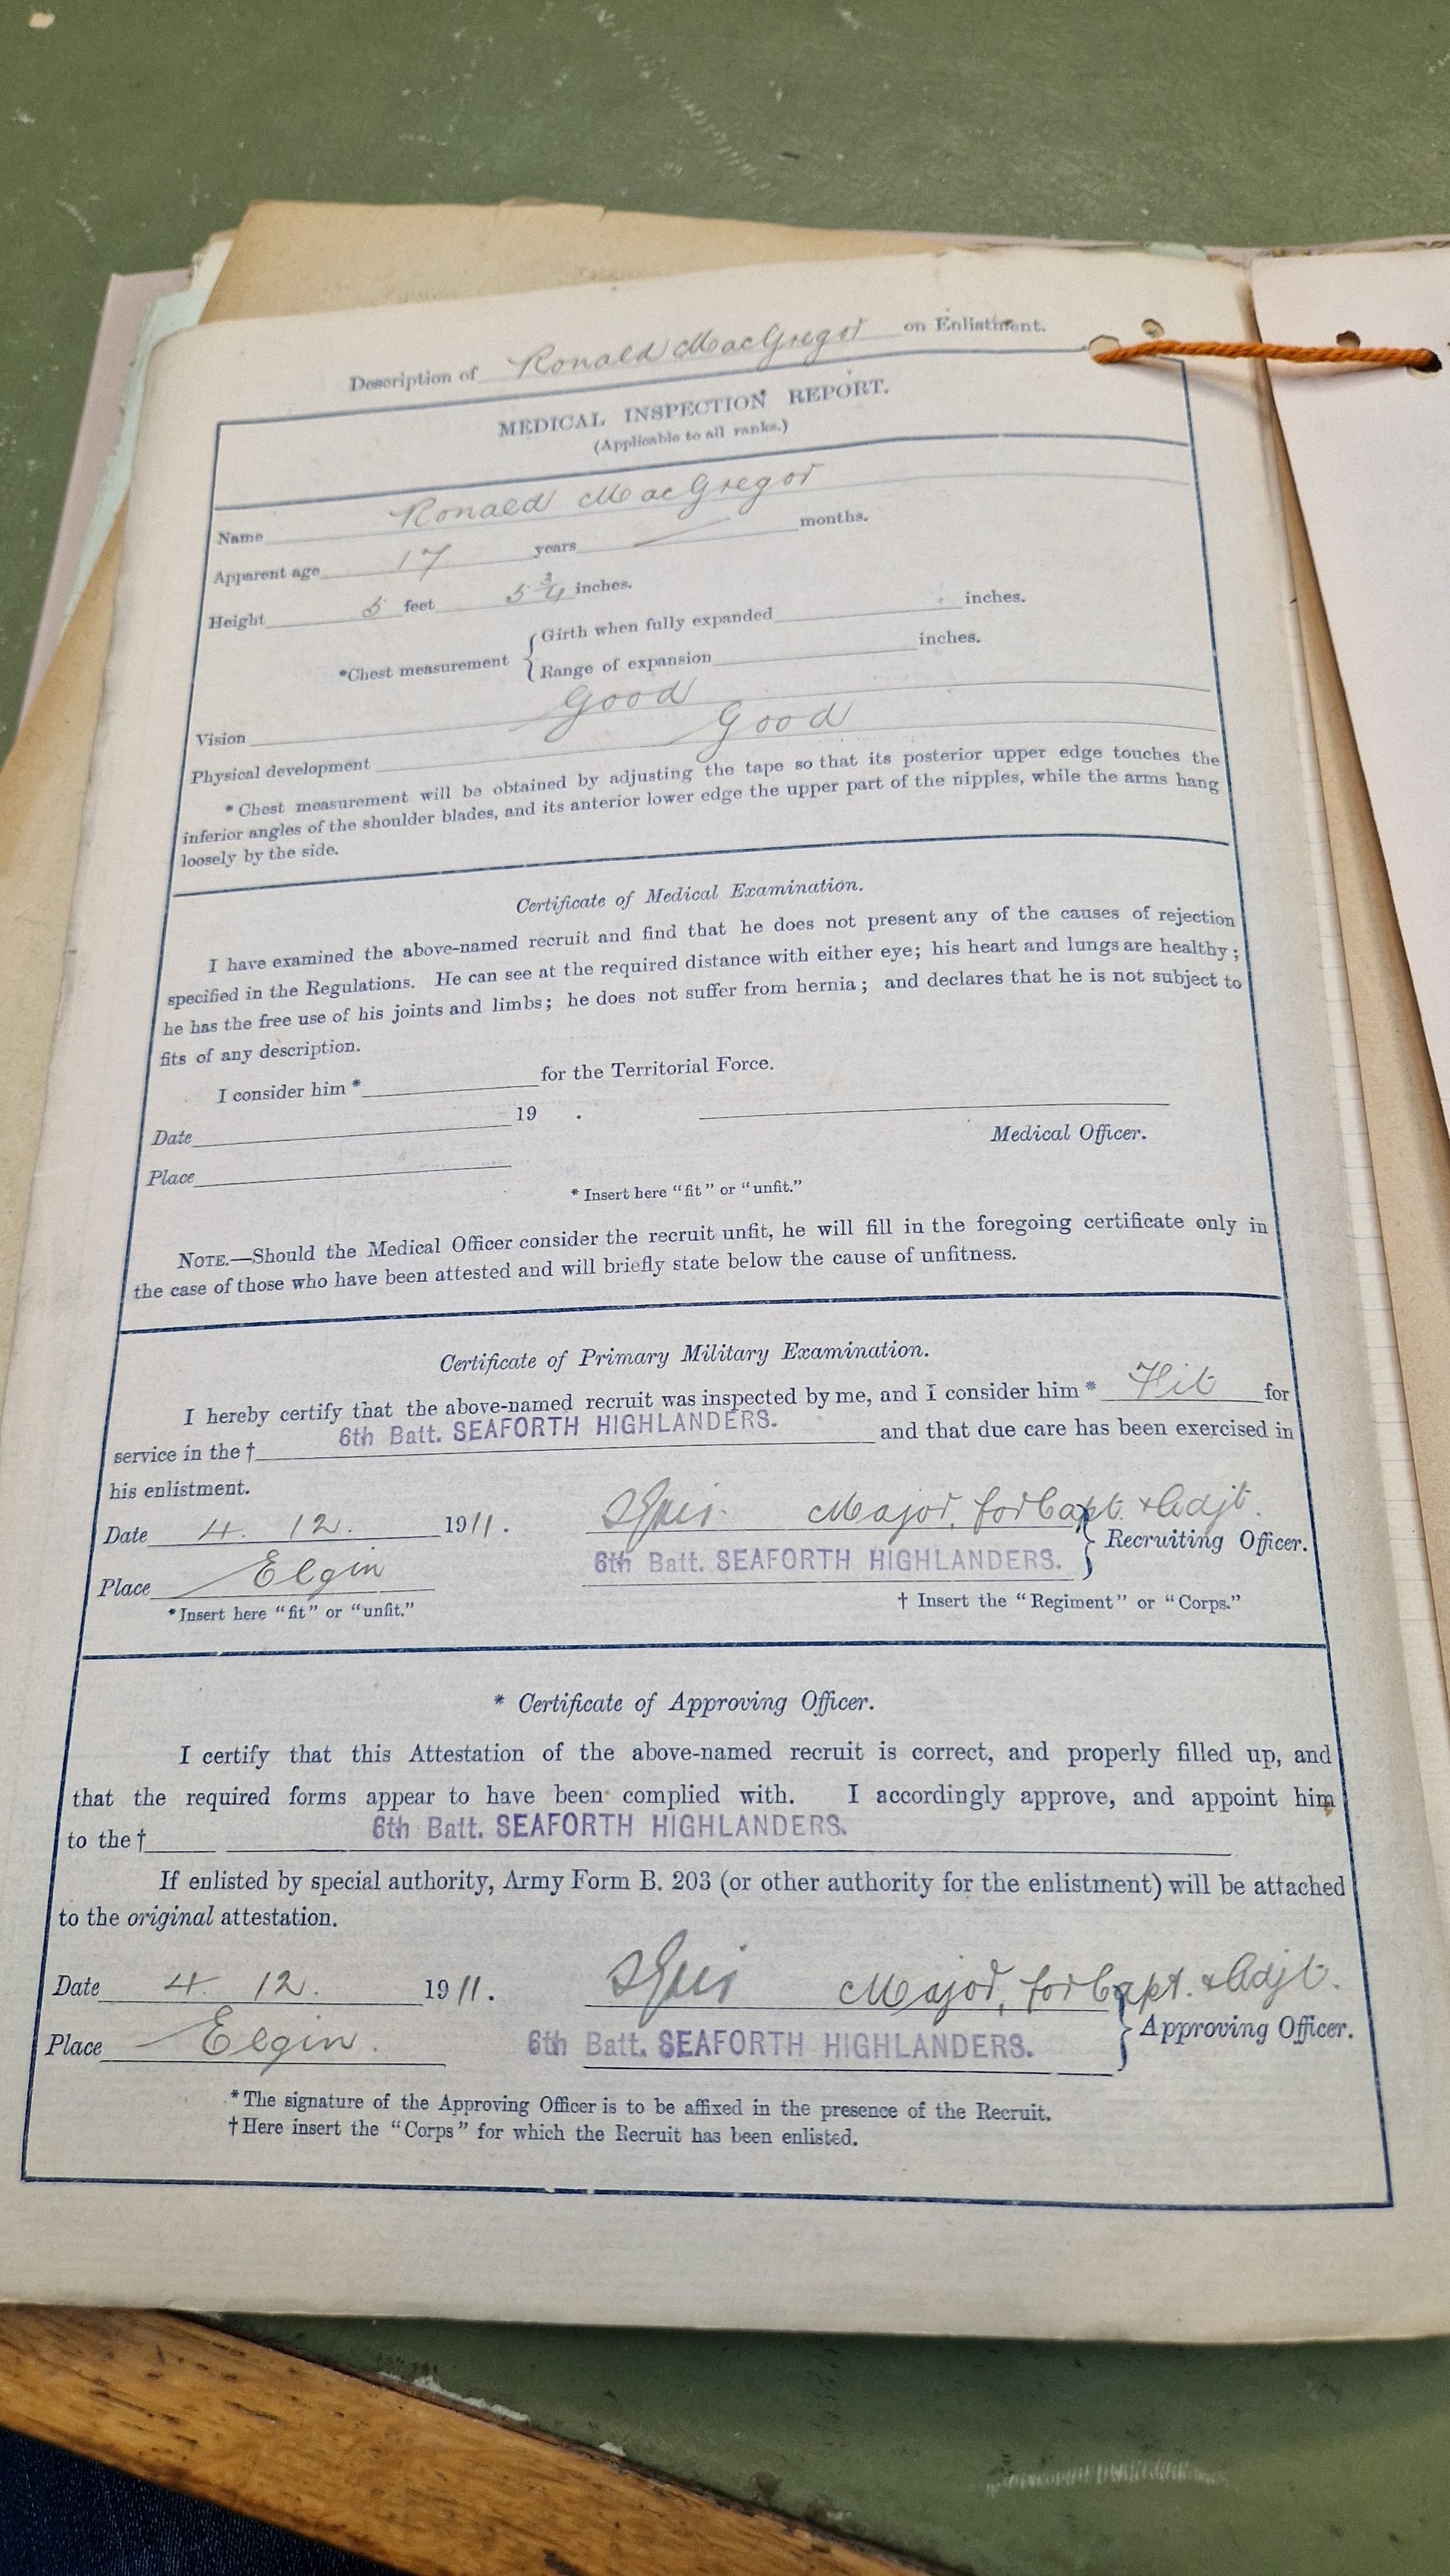 Description of Ronald MacGregor on Enlistment.
MEDICAL INSPECTION REPORT.
(Applicable to all ranks.)
Name Ronald MacGregor
Apparent age 17 years — months.
Height 5 feet 5 3/4 inches.
*Chest measurement { Girth when fully expanded inches.
Range of expansion inches.
Vision Good
Physical development Good
* Chest measurement will be obtained by adjusting the tape so that its posterior upper edge touches the
inferior angles of the shoulder blades, and its anterior lower edge the upper part of the nipples, while the arms hang
loosely by the side.
Certificate of Medical Examination.
I have examined the above-named recruit and find that he does not present any of the causes of rejection
specified in the Regulations. He can see at the required distance with either eye; his heart and lungs are healthy;
he has the free use of his joints and limbs; he does not suffer from hernia; and declares that he is not subject to
fits of any description.
I consider him * for the Territorial Force.
Date 19 .
Medical Officer.
Place
* Insert here "fit" or "unfit."
NOTE.—Should the Medical Officer consider the recruit unfit, he will fill in the foregoing certificate only in
the case of those who have been attested and will briefly state below the cause of unfitness.
Certificate of Primary Military Examination.
I hereby certify that the above-named recruit was inspected by me, and I consider him * Fit for
service in the † 6th Batt. SEAFORTH HIGHLANDERS. and that due care has been exercised in
his enlistment.
Date 4. 12. 1911. Major, for Capt. & Adjt.
6th Batt. SEAFORTH HIGHLANDERS. } Recruiting Officer.
Place Elgin
* Insert here "fit" or "unfit."
† Insert the "Regiment" or "Corps."
* Certificate of Approving Officer.
I certify that this Attestation of the above-named recruit is correct, and properly filled up, and
that the required forms appear to have been complied with. I accordingly approve, and appoint him
to the † 6th Batt. SEAFORTH HIGHLANDERS.
If enlisted by special authority, Army Form B. 203 (or other authority for the enlistment) will be attached
to the original attestation.
Date 4. 12. 1911. Major, for Capt. & Adjt.
Place Elgin. 6th Batt. SEAFORTH HIGHLANDERS. } Approving Officer.
* The signature of the Approving Officer is to be affixed in the presence of the Recruit.
† Here insert the "Corps" for which the Recruit has been enlisted.